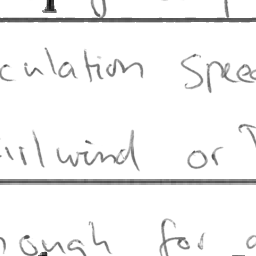 culation Spee
irlwind or
ough for